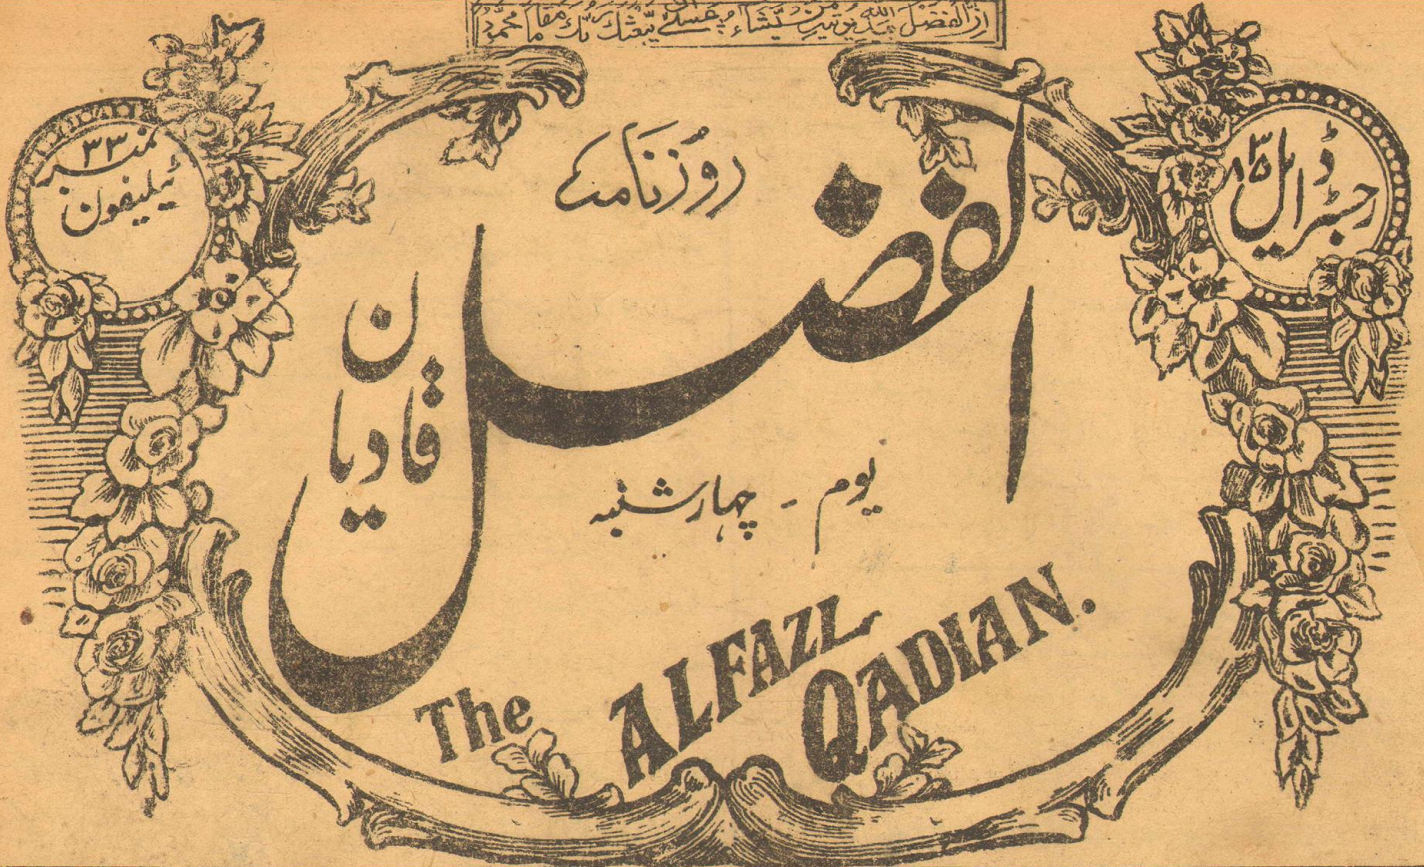 ان الفضل بید اللہ یوتیہ من یشاء عسے ان یبعثک ربک مقاما محمودا
رجسٹرڈ ایل ۸۳۵
نمبر ۳۳
ٹیلیفون
روزنامہ
الفضل
قادیان
یوم - چہارشنبہ
The ALFAZL
QADIAN.